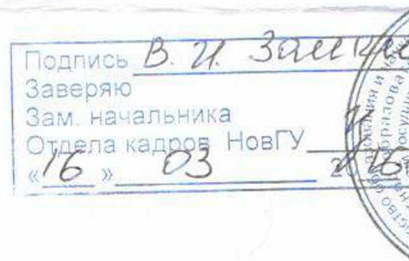 Подпись В. И.
Заверяю
Зам. начальника
Отдела кадров НовГУ
«16» 03 2016